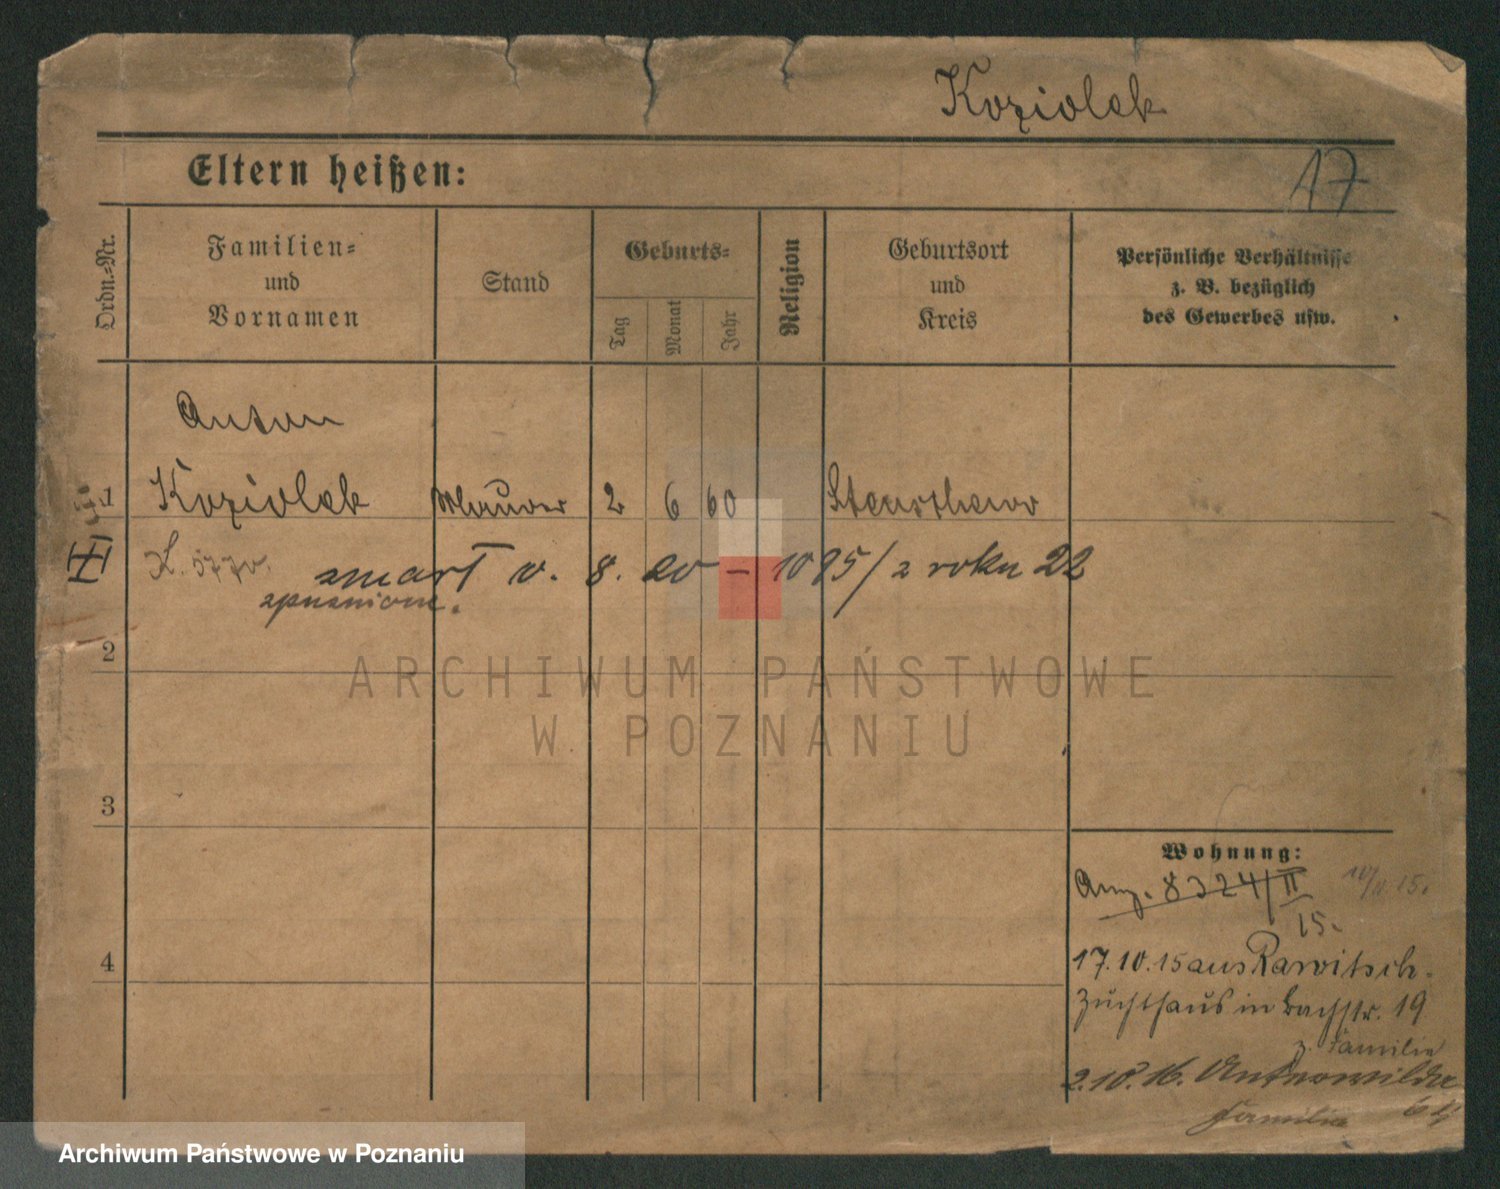 Koziolek
Eltern heißen:
17
Ordn.-Nr.
Familien-
und
Vornamen
Stand
Geburts-
Tag
Monat
Jahr
Religion
Geburtsort
und
Kreis
Persönliche Verhältnisse
z. B. bezüglich
des Gewerbes usw.
Anton
1 Koziolek Maurer 2 6 60
zmarł v. 8. 20 - 1095/2 roku 22
2
3
4
Wohnung:
Anz. 8324/II
15.
17.10.15 aus Rawitsch.
Zuchthaus in Bachstr. 19
z. Familie
2.10.16.
Familie
ARCHIWUM PAŃSTWOWE
W POZNANIU
Archiwum Państwowe w Poznaniu